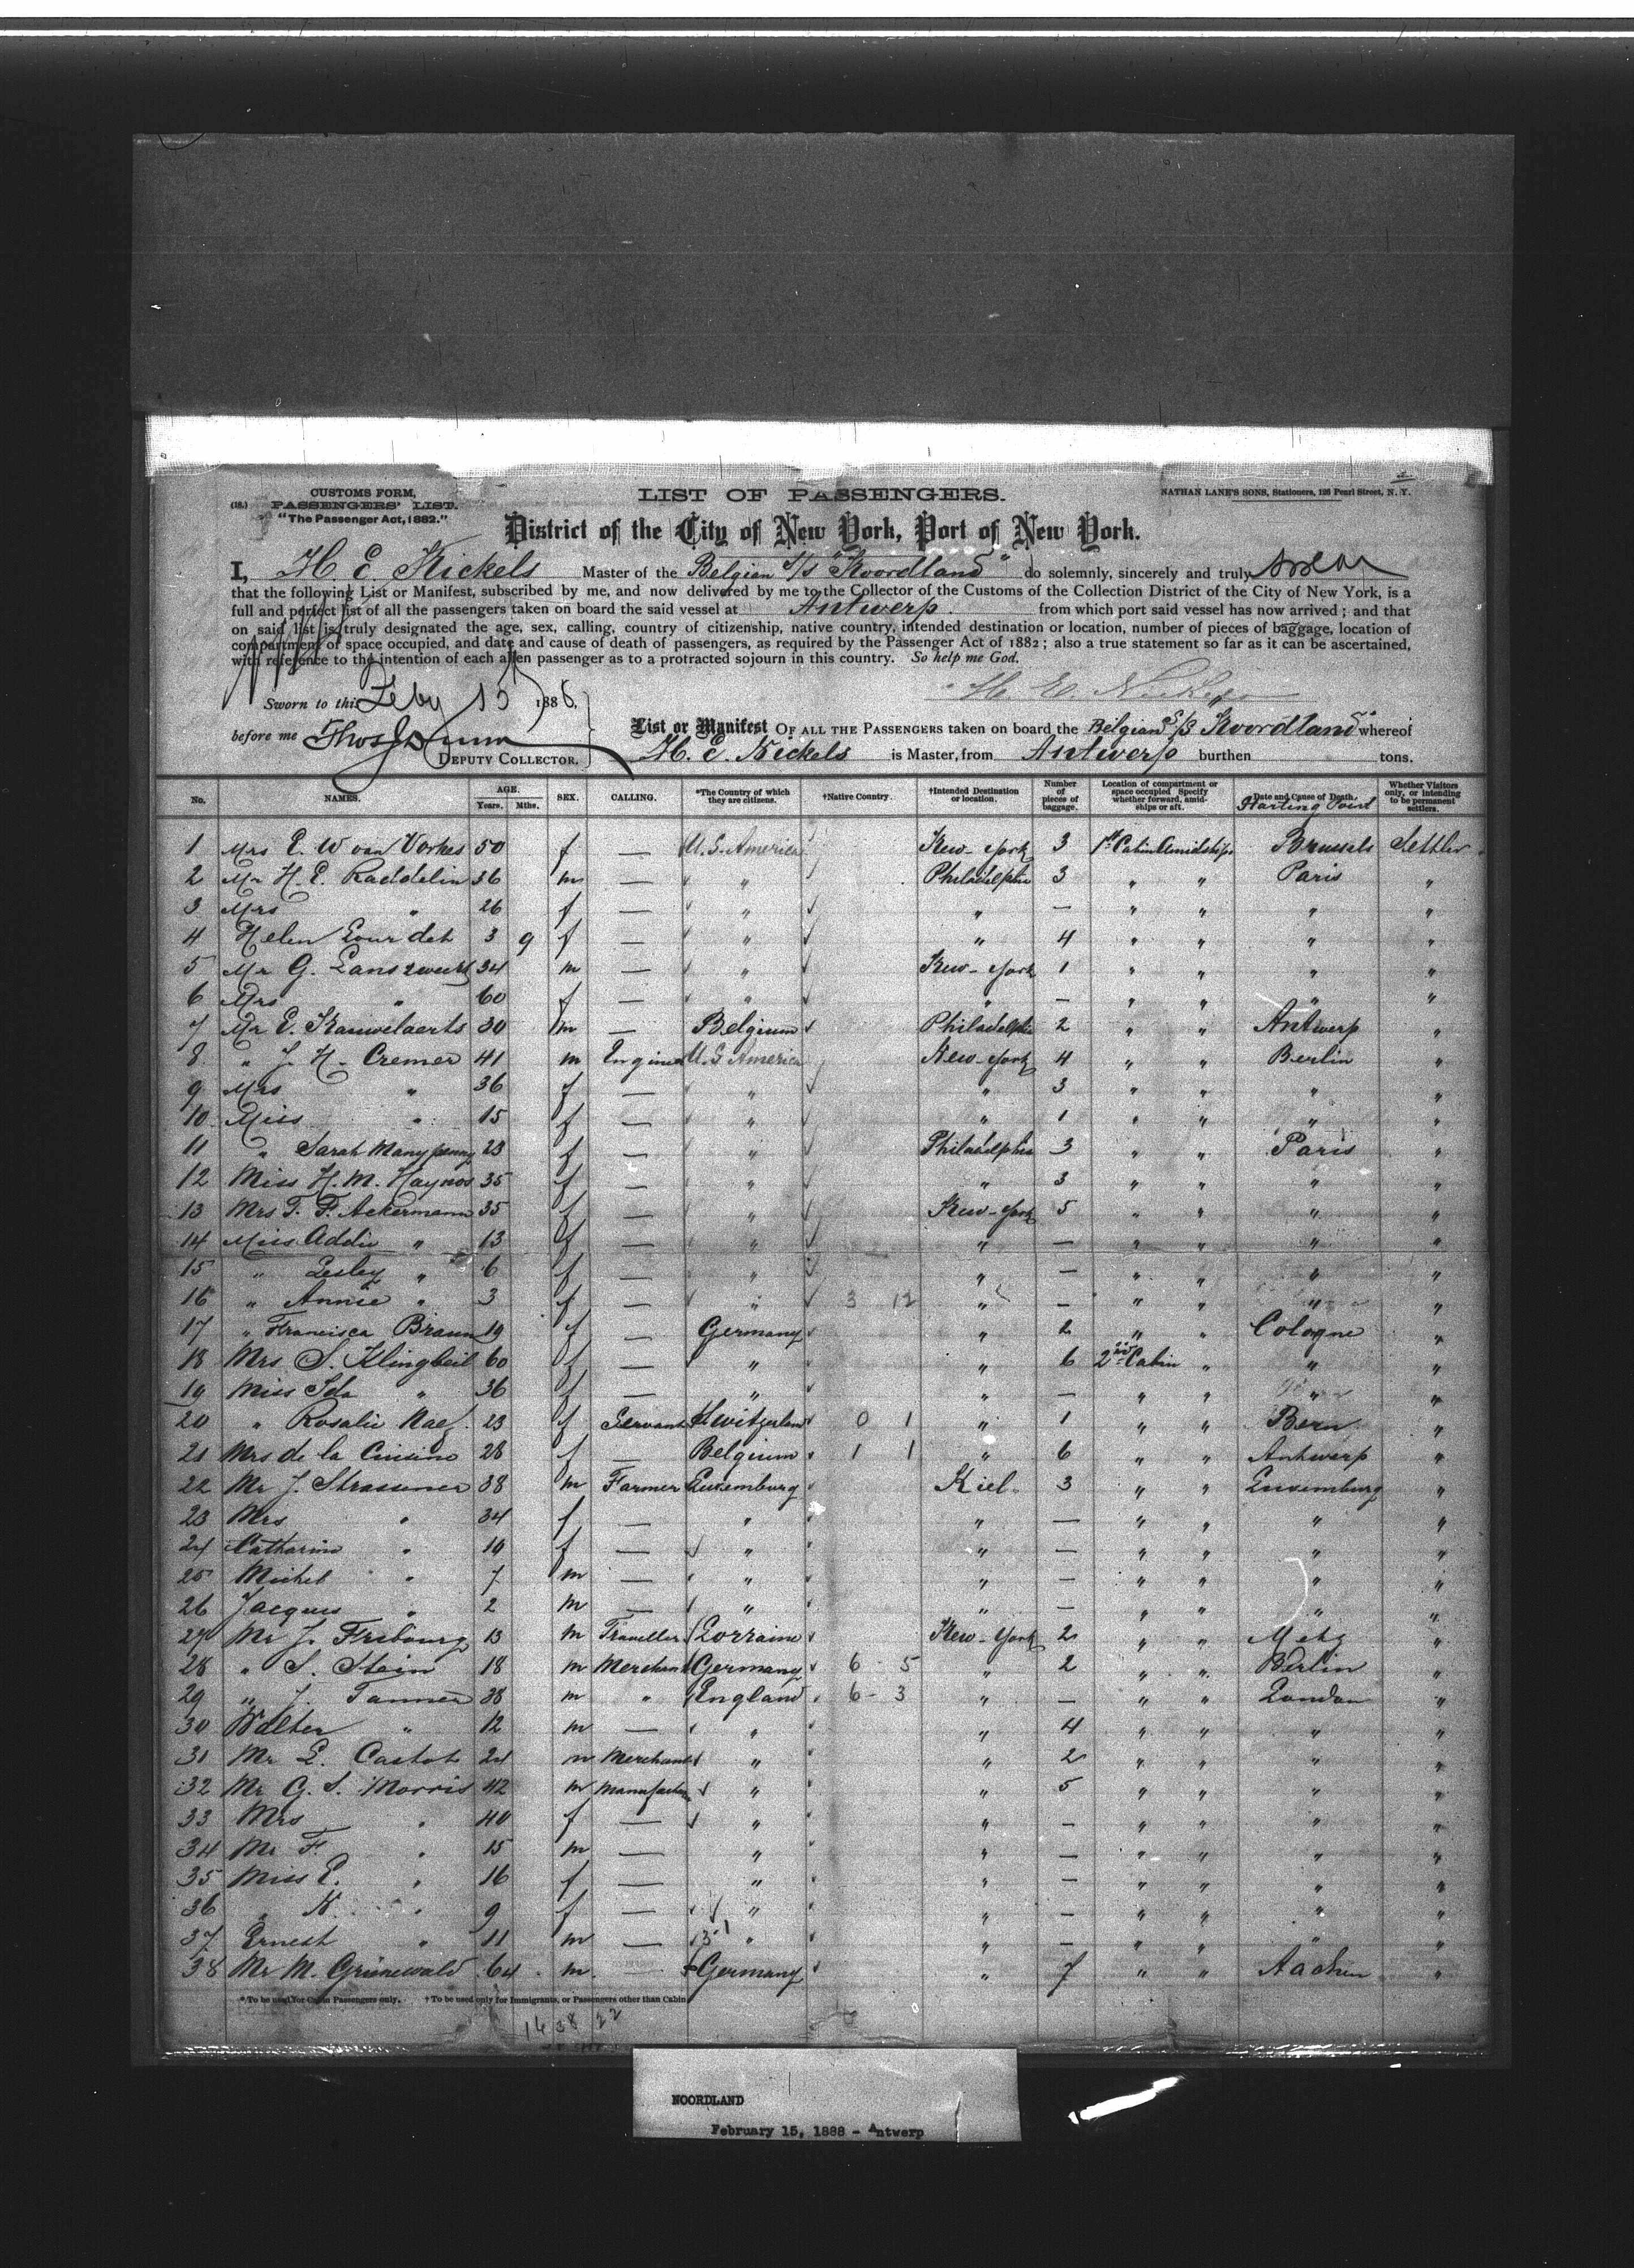 CUSTOMS FORM,
(18.) PASSENGERS' LIST.
"The Passenger Act, 1882."
LIST OF PASSENGERS.
NATHAN LANE'S SONS, Stationers, 126 Pearl Street, N. Y.
District of the City of New York, Port of New York.
I, H. E. Nickels Master of the Belgian S/S "Noordland" do solemnly, sincerely and truly swear
that the following List or Manifest, subscribed by me, and now delivered by me to the Collector of the Customs of the Collection District of the City of New York, is a
full and perfect list of all the passengers taken on board the said vessel at Antwerp. from which port said vessel has now arrived; and that
on said list is truly designated the age, sex, calling, country of citizenship, native country, intended destination or location, number of pieces of baggage, location of
compartment or space occupied, and date and cause of death of passengers, as required by the Passenger Act of 1882; also a true statement so far as it can be ascertained,
with reference to the intention of each alien passenger as to a protracted sojourn in this country. So help me God.
H. E. Nickels
Sworn to this Feby 15 1888,
before me Thos
DEPUTY COLLECTOR.
List or Manifest OF ALL THE PASSENGERS taken on board the Belgian S/S Noordland whereof
H. E. Nickels is Master, from Antwerp burthen tons.
No. NAMES. AGE. Years. Mths. SEX. CALLING. *The Country of which they are citizens. †Native Country. †Intended Destination or location. Number of pieces of baggage. Location of compartment or space occupied Specify whether forward, amidships or aft. Date and Cause of Death. Starting Point Whether Visitors only, or intending to be permanent settlers.
1 Mrs E. W van Vorhes 50 f — U.S. America New-York 3 1st Cabin Amidships Brussels Settler
2 Mr H. E. Raddelin 36 m — " Philadelphia 3 " " Paris "
3 Mrs " 26 f — " " — " " " "
4 Helen Lourdet 3 9 f — " " 4 " " " "
5 Mr G. Lanszweert 34 m — " New-York 1 " " " "
6 Mrs " 60 f — " " — " " " "
7 Mr E. Nauwelaerts 30 m — Belgium Philadelphia 2 " " Antwerp "
8 " J. H. Cremer 41 m Engineer U.S America New-York 4 " " Berlin "
9 Mrs " 36 f — " " 3 " " " "
10 Miss " 15 f — " " 1 " " " "
11 " Sarah Manypenny 23 f — " Philadelphia 3 " " Paris "
12 Miss H. M. Haynos 35 f — " " 3 " " " "
13 Mrs T. F. Ackermann 35 f — " New-York 5 " " " "
14 Miss Addie " 13 f — " " — " " " "
15 " Lesley " 6 f — " " — " " " "
16 " Annie " 3 f — " 3 12 " — " " " "
17 " Francisca Braun 19 f — Germany " 2 " " Cologne "
18 Mrs S. Klingbeil 60 f — " " 6 2nd Cabin " " "
19 Miss Ida " 36 f — " " — " " " "
20 " Rosalie Naef 23 f Servant Switzerland 0 1 " 1 " " Bern "
21 Mrs de la Cuisine 28 f — Belgium 1 1 " 6 " " Antwerp "
22 Mr J. Strassener 38 m Farmer Luxemburg Kiel 3 " " Luxemburg "
23 Mrs " 34 f — " " — " " " "
24 Catharine " 10 f — " " — " " " "
25 Michel " 7 m — " " — " " " "
26 Jacques " 2 m — " " — " " " "
27 Mr J. Fribourg 13 m Traveller Lorraine New-York 2 " " Metz "
28 " S. Stein 18 m Merchant Germany 6 5 " 2 " " Berlin "
29 " J. Tanner 38 m " England 6 - 3 " — " " London "
30 Walter " 12 m — " " 4 " " " "
31 Mr E. Castot 24 m Merchant " " 2 " " " "
32 Mr G. S. Morris 42 m Manufactur " " 5 " " " "
33 Mrs " 40 f — " " — " " " "
34 Mr F. " 15 m — " " — " " " "
35 Miss E. " 16 f — " " — " " " "
36 " N. " 9 f — " " — " " " "
37 Ernest " 11 m — " " — " " " "
38 Mr M. Grünewald 64 m — Germany " 7 " " Aachen "
* To be used for Cabin Passengers only. † To be used only for Immigrants, or Passengers other than Cabin
16 38 22
NOORDLAND
February 15, 1888 - Antwerp